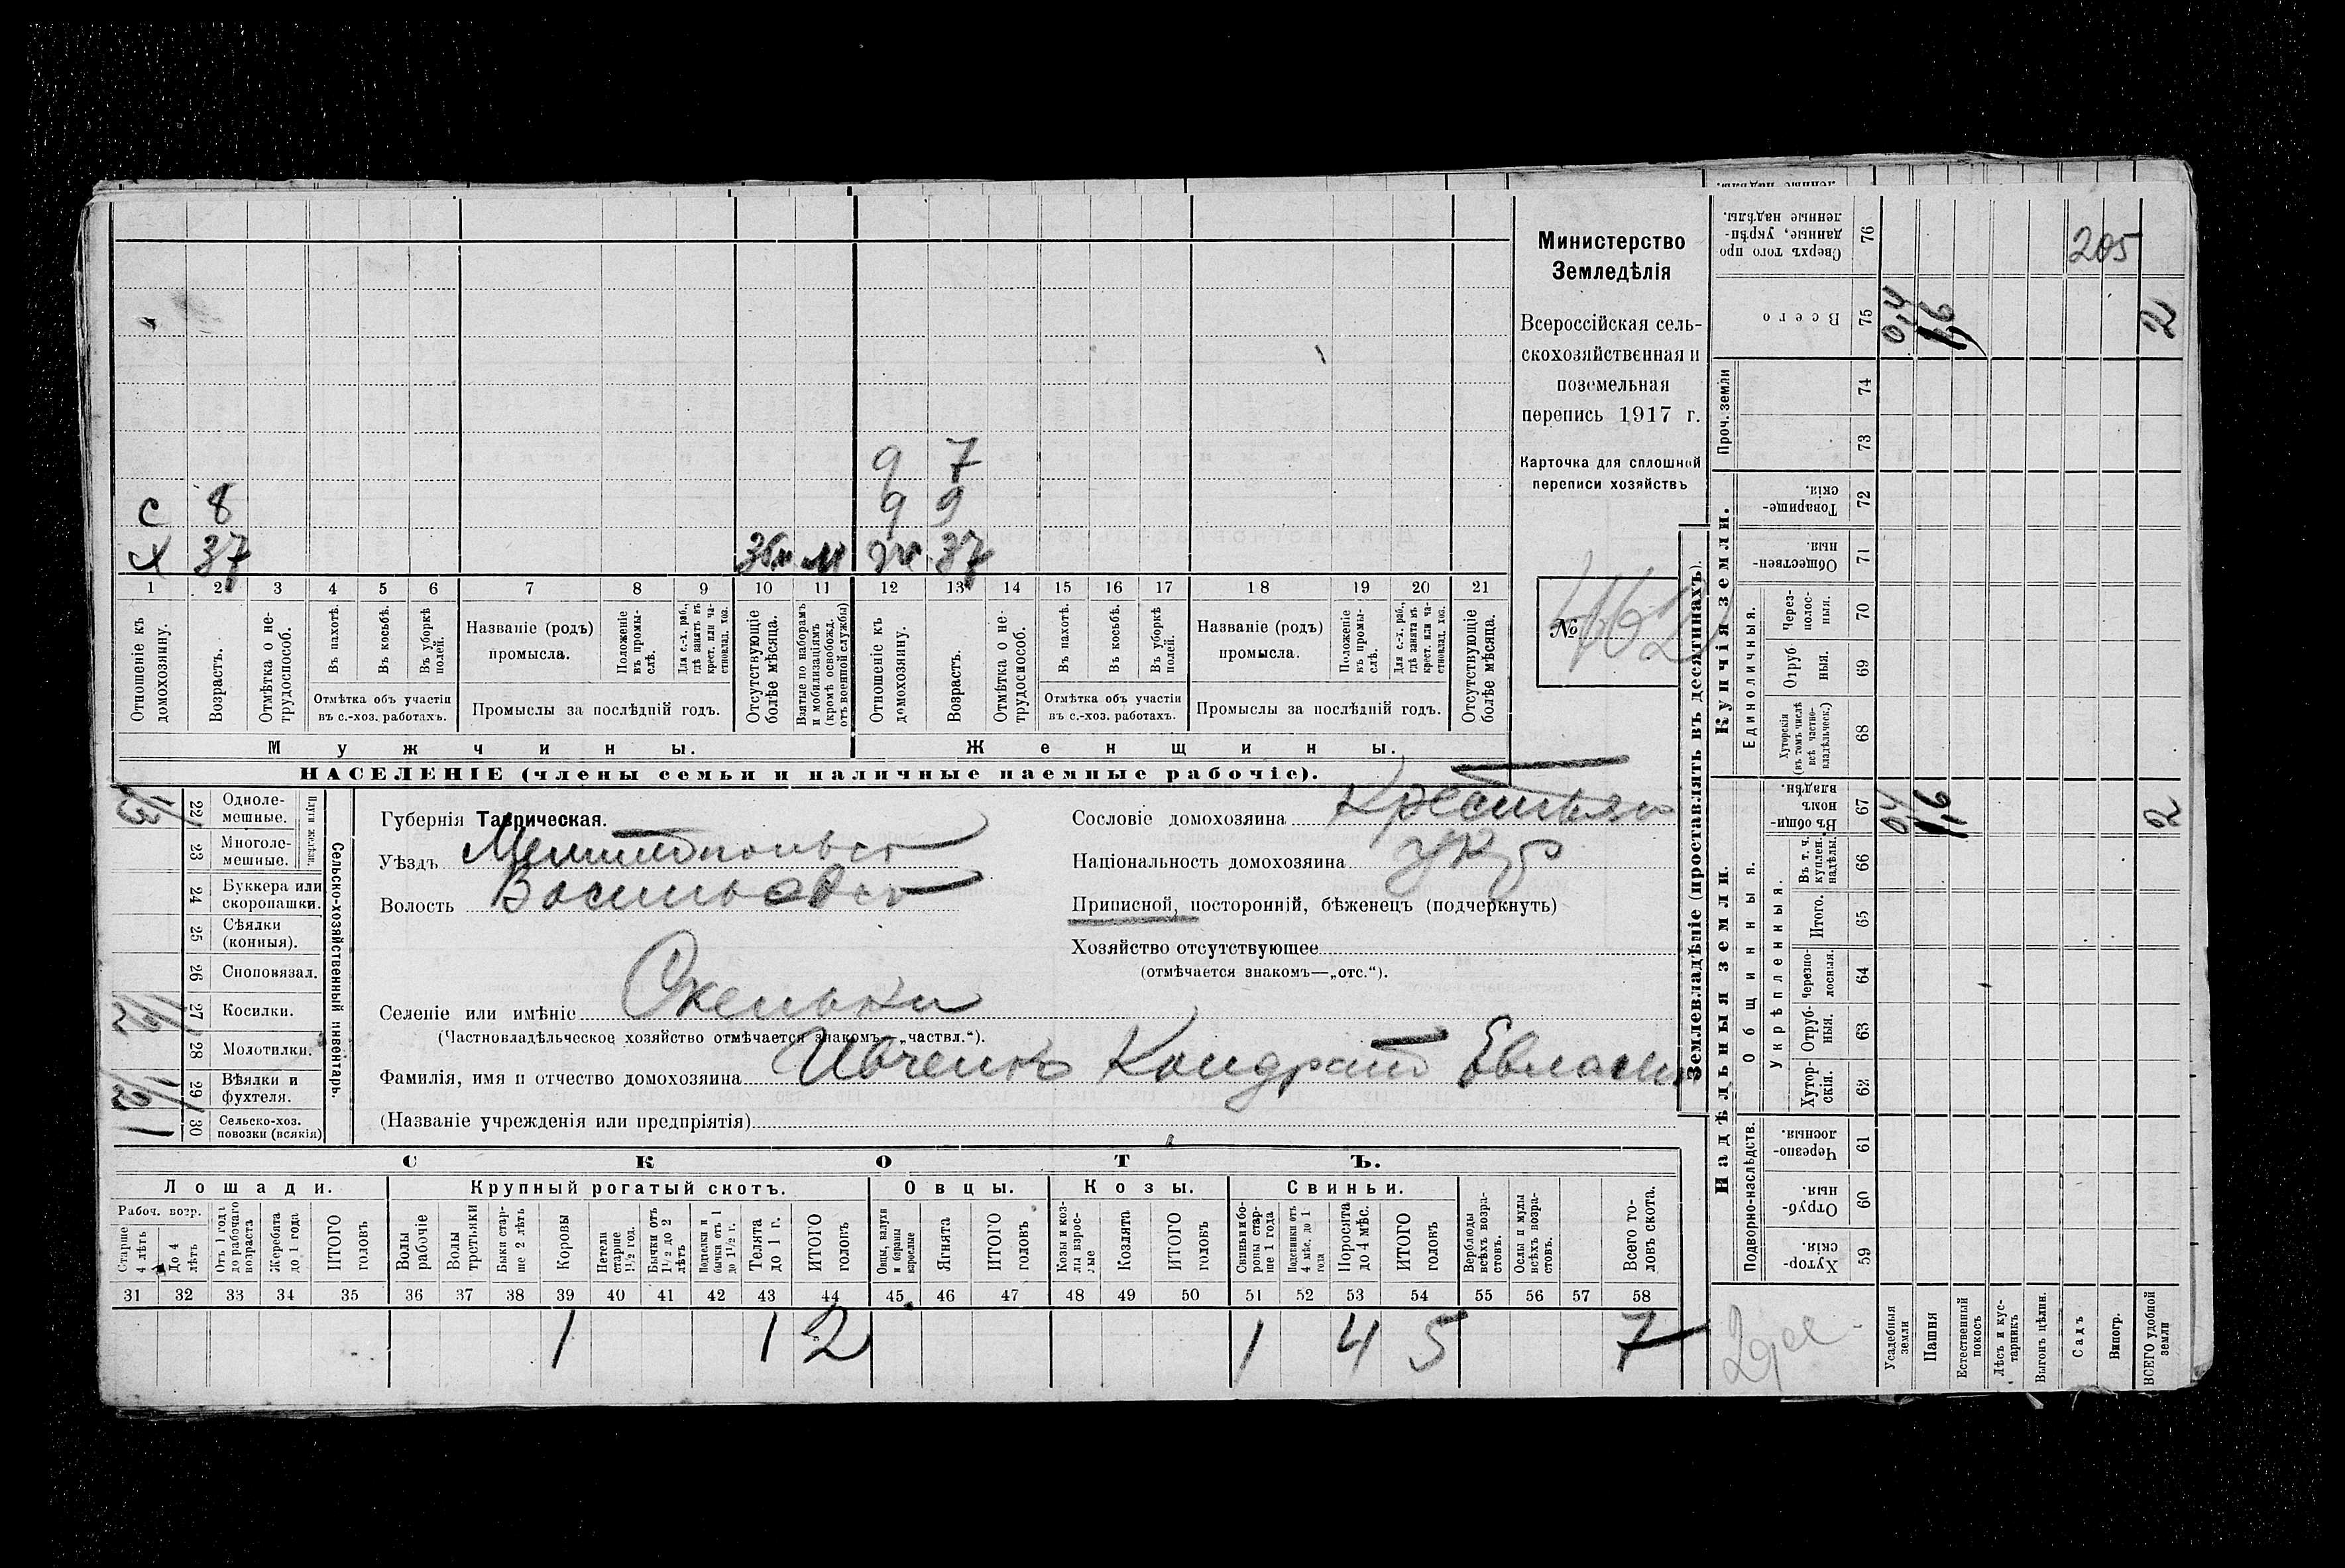 Министерство
Земледѣлія
Всероссійская сель-
скохозяйственная и
поземельная
перепись 1917 г.
Карточка для сплошной
переписи хозяйствъ
№ 462
ч 7
с 8 9
х 37 м ж 37
1 2 3 4 5 6 7 8 9 10 11 12 13 14 15 16 17 18 19 20 21
Отношеніе къ домохозяину.
Возрастъ.
Отмѣтка о не-трудоспособ.
Въ пахотѣ.
Въ косьбѣ.
Въ уборкѣ полей.
Отмѣтка объ участіи въ с.-хоз. работахъ.
Названіе (родъ) промысла.
Положеніе въ промы-слѣ.
Для с.-х. раб., гдѣ занятъ въ крест. или ча-ствовлад. хоз.
Промыслы за послѣдній годъ.
Отсутствующіе болѣе мѣсяца.
Взятые по наборамъ и мобилизаціямъ (кромѣ освобожд. отъ военной службы)
Отношеніе къ домохозяину.
Возрастъ.
Отмѣтка о не-трудоспособ.
Въ пахотѣ.
Въ косьбѣ.
Въ уборкѣ полей.
Отмѣтка объ участіи въ с.-хоз. работахъ.
Названіе (родъ) промысла.
Положеніе въ промы-слѣ.
Для с.-х. раб., гдѣ занята въ крест. или ча-ствовлад. хоз.
Промыслы за послѣдній годъ.
Отсутствующіе болѣе мѣсяца.
Мужчины. Женщины.
НАСЕЛЕНІЕ (члены семьи и наличные наемные рабочіе).
Сельско-хозяйственный инвентарь.
22 Одноле-мешные.
23 Многоле-мешные.
24 Буккера или скоропашки.
25 Сѣялки (конныя).
26 Сноповязал.
27 Косилки.
28 Молотилки.
29 Вѣялки и фухтеля.
1 30 Сельско-хоз. повозки (всякія)
Губернія Таврическая.
Уѣздъ Мелитопольс
Волость Васильевск
Селеніе или имѣніе Скельки
(Частновладѣльческое хозяйство отмѣчается знакомъ—„частвл.“).
Фамилія, имя и отчество домохозяина Ивченко Кондрат Евласи
(Названіе учрежденія или предпріятія)
Сословіе домохозяина Крестьян
Національность домохозяина укр
Приписной, посторонній, бѣженецъ (подчеркнуть)
Хозяйство отсутствующее
(отмѣчается знакомъ—„отс.“).
СКОТЪ.
Лошади. Крупный рогатый скотъ. Овцы. Козы. Свиньи.
Рабоч. возр.
Старше 4 лѣтъ
До 4 лѣтъ
Отъ 1 года до рабочаго возраста
Жеребята до 1 года
ИТОГО головъ
Волы рабочіе
Волы третьяки
Быки стар-ше 2 лѣтъ
Коровы
Нетели старше 1½ год.
Бычки отъ 1½ до 2 лѣтъ
Подтелки и бычки отъ 1 до 1½ г.
Телята до 1 г.
ИТОГО головъ
Овцы, валухи и бараны взрослые
Ягнята
ИТОГО головъ
Козы и коз-лы взрос-лые
Козлята
ИТОГО головъ
Свиньи и бо-ровы стар-ше 1 года
Подсвинки отъ 4 мѣс. до 1 года
Поросята до 4 мѣс.
ИТОГО головъ
Верблюды всѣхъ возра-стовъ.
Ослы и мулы всѣхъ возра-стовъ.
Всего го-ловъ скота.
31 32 33 34 35 36 37 38 39 40 41 42 43 44 45 46 47 48 49 50 51 52 53 54 55 56 57 58
1 1 2 1 4 5 7
Землевладѣніе (проставлять въ десятинахъ).
Надѣльныя земли. Купчія земли.
Сверхъ того про данные, укрѣп-ленные надѣлы. 76 205
Всего 75 2
Проч. земли 74 73
Товарище-скія. 72
Обществен-ныя. 71
Единоличныя.
Через-полос-ныя. 70
Отруб-ныя. 69
Хуторскія (въ томъ числѣ всѣ частно-владѣльческ.) 68
Въ общи-номъ владѣн. 67 2
Общинныя.
Укрѣпленныя.
Въ т. ч. куплен. надѣлы. 66
Итого. 65
Черезпо-лосныя. 64
Отруб-ныя. 63
Хутор-скія. 62
Подворно-наслѣдств.
Черезпо-лосныя. 61
Отруб-ныя. 60
Хутор-скія. 59
Усадебныя земли
Пашня
Естественный покосъ
Лѣсъ и кус-тарникъ
Выгонъ цѣлин.
Садъ
Виногр.
ВСЕГО удобной земли